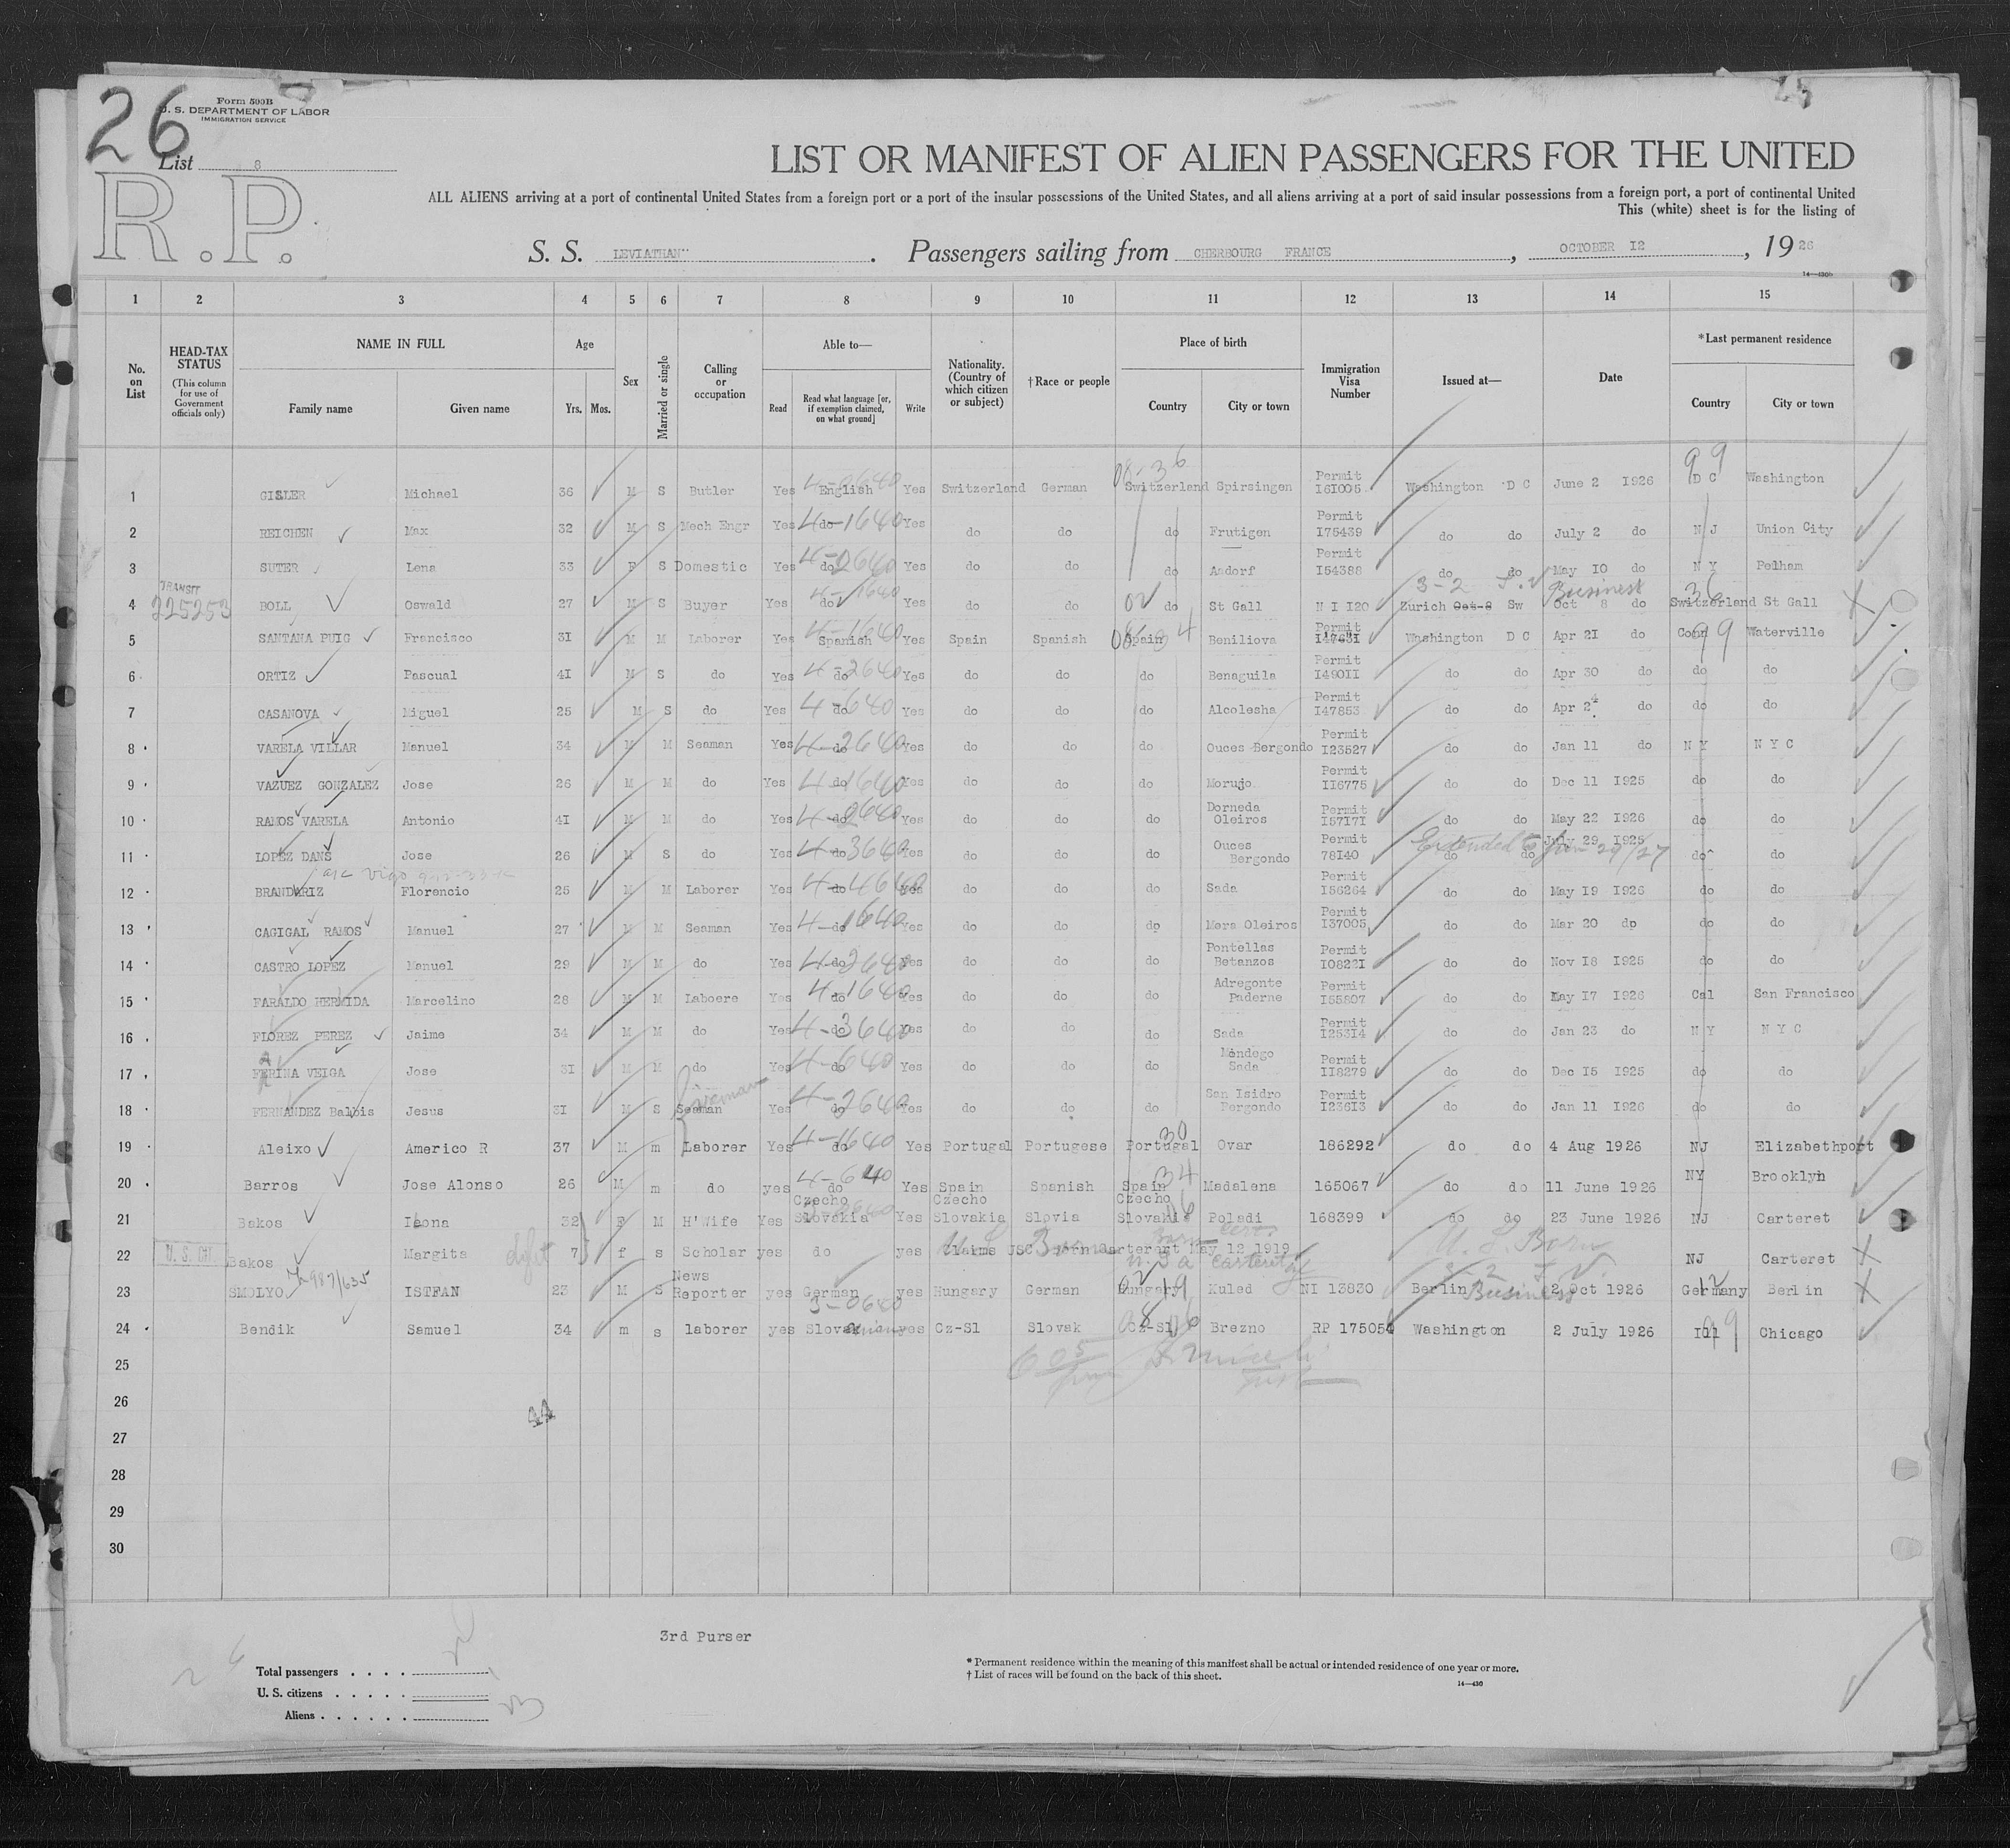 26
Form 500B
U. S. DEPARTMENT OF LABOR
IMMIGRATION SERVICE
List 8
R.P.
LIST OR MANIFEST OF ALIEN PASSENGERS FOR THE UNITED
ALL ALIENS arriving at a port of continental United States from a foreign port or a port of the insular possessions of the United States, and all aliens arriving at a port of said insular possessions from a foreign port, a port of continental United
This (white) sheet is for the listing of
S. S. LEVIATHAN" . Passengers sailing from CHERBOURG FRANCE , OCTOBER 12 , 1926
14—430b
1 2 3 4 5 6 7 8 9 10 11 12 13 14 15
No. on List HEAD-TAX STATUS (This column for use of Government officials only) NAME IN FULL Family name Given name Age Yrs. Mos. Sex Married or single Calling or occupation Able to— Read Read what language [or, if exemption claimed, on what ground] Write Nationality. (Country of which citizen or subject) †Race or people Place of birth Country City or town Immigration Visa Number Issued at— Date *Last permanent residence Country City or town
1 GISLER Michael 36 M S Butler Yes English Yes Switzerland German Switzerland Spirsingen Permit 161005 Washington D C June 2 1926 D C Washington
2 REICHEN Max 32 M S Mech Engr Yes do Yes do do do Frutigen Permit 175439 do do July 2 do N J Union City
3 SUTER Lena 33 F S Domestic Yes do Yes do do do Andorf Permit 154388 do do May 10 do N Y Pelham
4 TRANSIT 225253 BOLL Oswald 27 M S Buyer Yes do Yes do do do St Gall N I 120 Zurich Oct-8 Sw Oct 8 do Business Switzerland St Gall
5 SANTANA PUIG Francisco 31 M M Laborer Yes Spanish Yes Spain Spanish Spain Beniliova Permit 147631 Washington D C Apr 21 do Conn Waterville
6 ORTIZ Pascual 41 M S do Yes do Yes do do do Benaguila Permit 149011 do do Apr 30 do do do
7 CASANOVA Miguel 25 M S do Yes do Yes do do do Alcolesha Permit 147853 do do Apr 24 do do do
8 VARELA VILLAR Manuel 34 M M Seaman Yes do Yes do do do Ouces Bergondo Permit 123527 do do Jan 11 do N Y N Y C
9 VAZUEZ GONZALEZ Jose 26 M M do Yes do Yes do do do Morujo Permit 116775 do do Dec 11 1925 do do
10 RAMOS VARELA Antonio 41 M M do Yes do Yes do do do Dorneda Oleiros Permit 157171 do do May 22 1926 do do
11 LOPEZ DANS Jose 26 M S do Yes do Yes do do do Ouces Bergondo Permit 78140 do do July 29 1925 Extended to Jan 29/27 do do
12 BRANDARIZ Florencio 25 M M Laborer Yes do Yes do do do Sada Permit 156264 do do May 19 1926 do do
13 CAGIGAL RAMOS Manuel 27 M M Seaman Yes do Yes do do do Mera Oleiros Permit 137005 do do Mar 20 do do do
14 CASTRO LOPEZ Manuel 29 M M do Yes do Yes do do do Pontellas Betanzos Permit 108221 do do Nov 18 1925 do do
15 FARALDO HERMIDA Marcelino 28 M M Laboere Yes do Yes do do do Adregonte Paderne Permit 155807 do do May 17 1926 Cal San Francisco
16 FLOREZ PEREZ Jaime 34 M M do Yes do Yes do do do Sada Permit 125314 do do Jan 23 do N Y N Y C
17 FERINA VEIGA Jose 31 M M do Yes do Yes do do do Mondego Sada Permit 118279 do do Dec 15 1925 do do
18 FERNANDEZ Balbis Jesus 31 M S Seaman Fireman Yes do Yes do do do San Isidro Bergondo Permit 123613 do do Jan 11 1926 do do
19 Aleixo Americo R 37 M m Laborer Yes do Yes Portugal Portugese Portugal Ovar 186292 do do 4 Aug 1926 NJ Elizabethport
20 Barros Jose Alonso 26 M m do yes do Yes Spain Spanish Spain Madalena 165067 do do 11 June 1926 NY Brooklyn
21 Bakos Ilona 32 F M H'Wife Yes Czecho Slovakia Yes Czecho Slovakia Slovia Czecho Slovakia Poladi 168399 do do 23 June 1926 NJ Carteret
22 U. S. CIT. Bakos Margita 7 f s Scholar yes do yes Claims USC Born Carteret May 12 1919 U. S. Born NJ Carteret
23 SMOLYO ISTFAN 23 M S News Reporter yes German yes Hungary German Hungary Kuled NI 13830 Berlin Business 2 Oct 1926 Germany Berlin
24 Bendik Samuel 34 m s laborer yes Slovanian yes Cz-Sl Slovak Cz-Sl Brezno RP 175054 Washington 2 July 1926 Ill Chicago
25
26
27
28
29
30
3rd Purser
Total passengers . . . .
U. S. citizens . . . . .
Aliens . . . . . .
* Permanent residence within the meaning of this manifest shall be actual or intended residence of one year or more.
† List of races will be found on the back of this sheet.
14—430